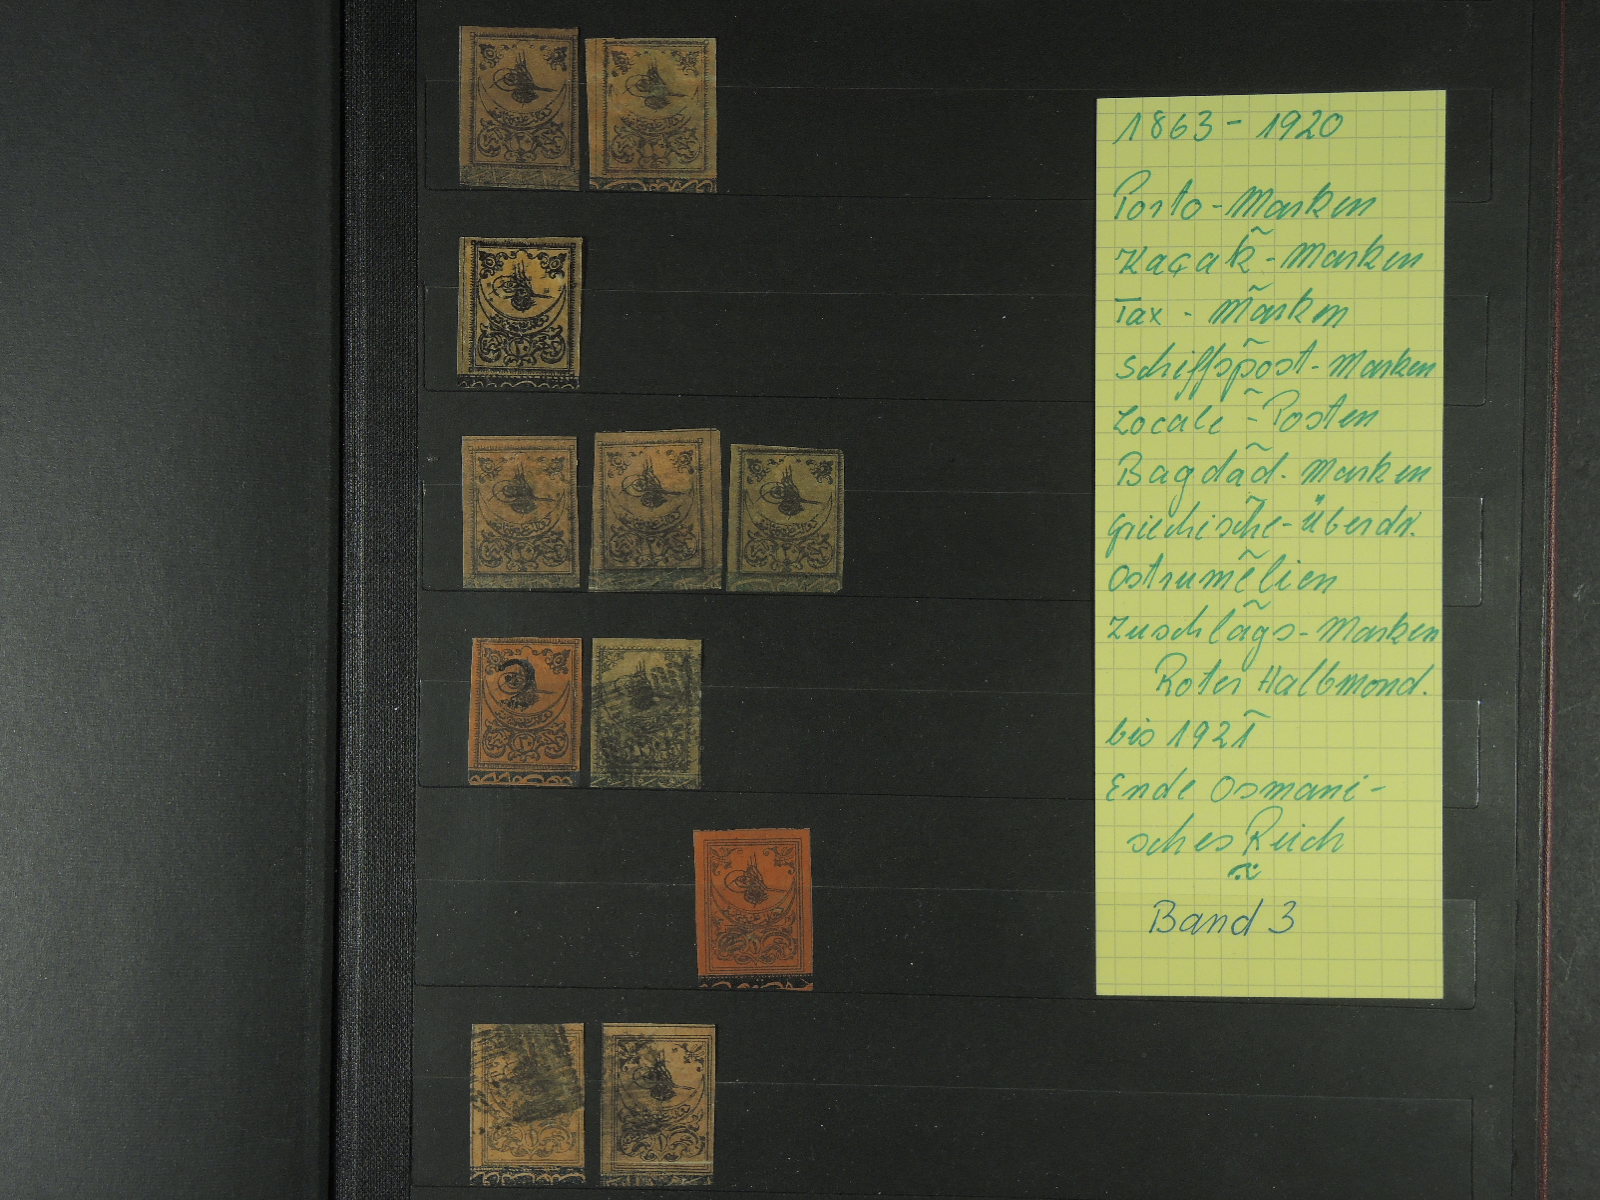 1863 - 1920
Porto - Marken
Kaçak - Marken
Tax - Marken
Schiffspost - Marken
Locale - Posten
Bagdad - Marken
Griechische - Überdr.
Ostrumelien
Zuschlags - Marken
Roter Halbmond.
bis 1921
Ende Osmani-
sches Reich
Band 3